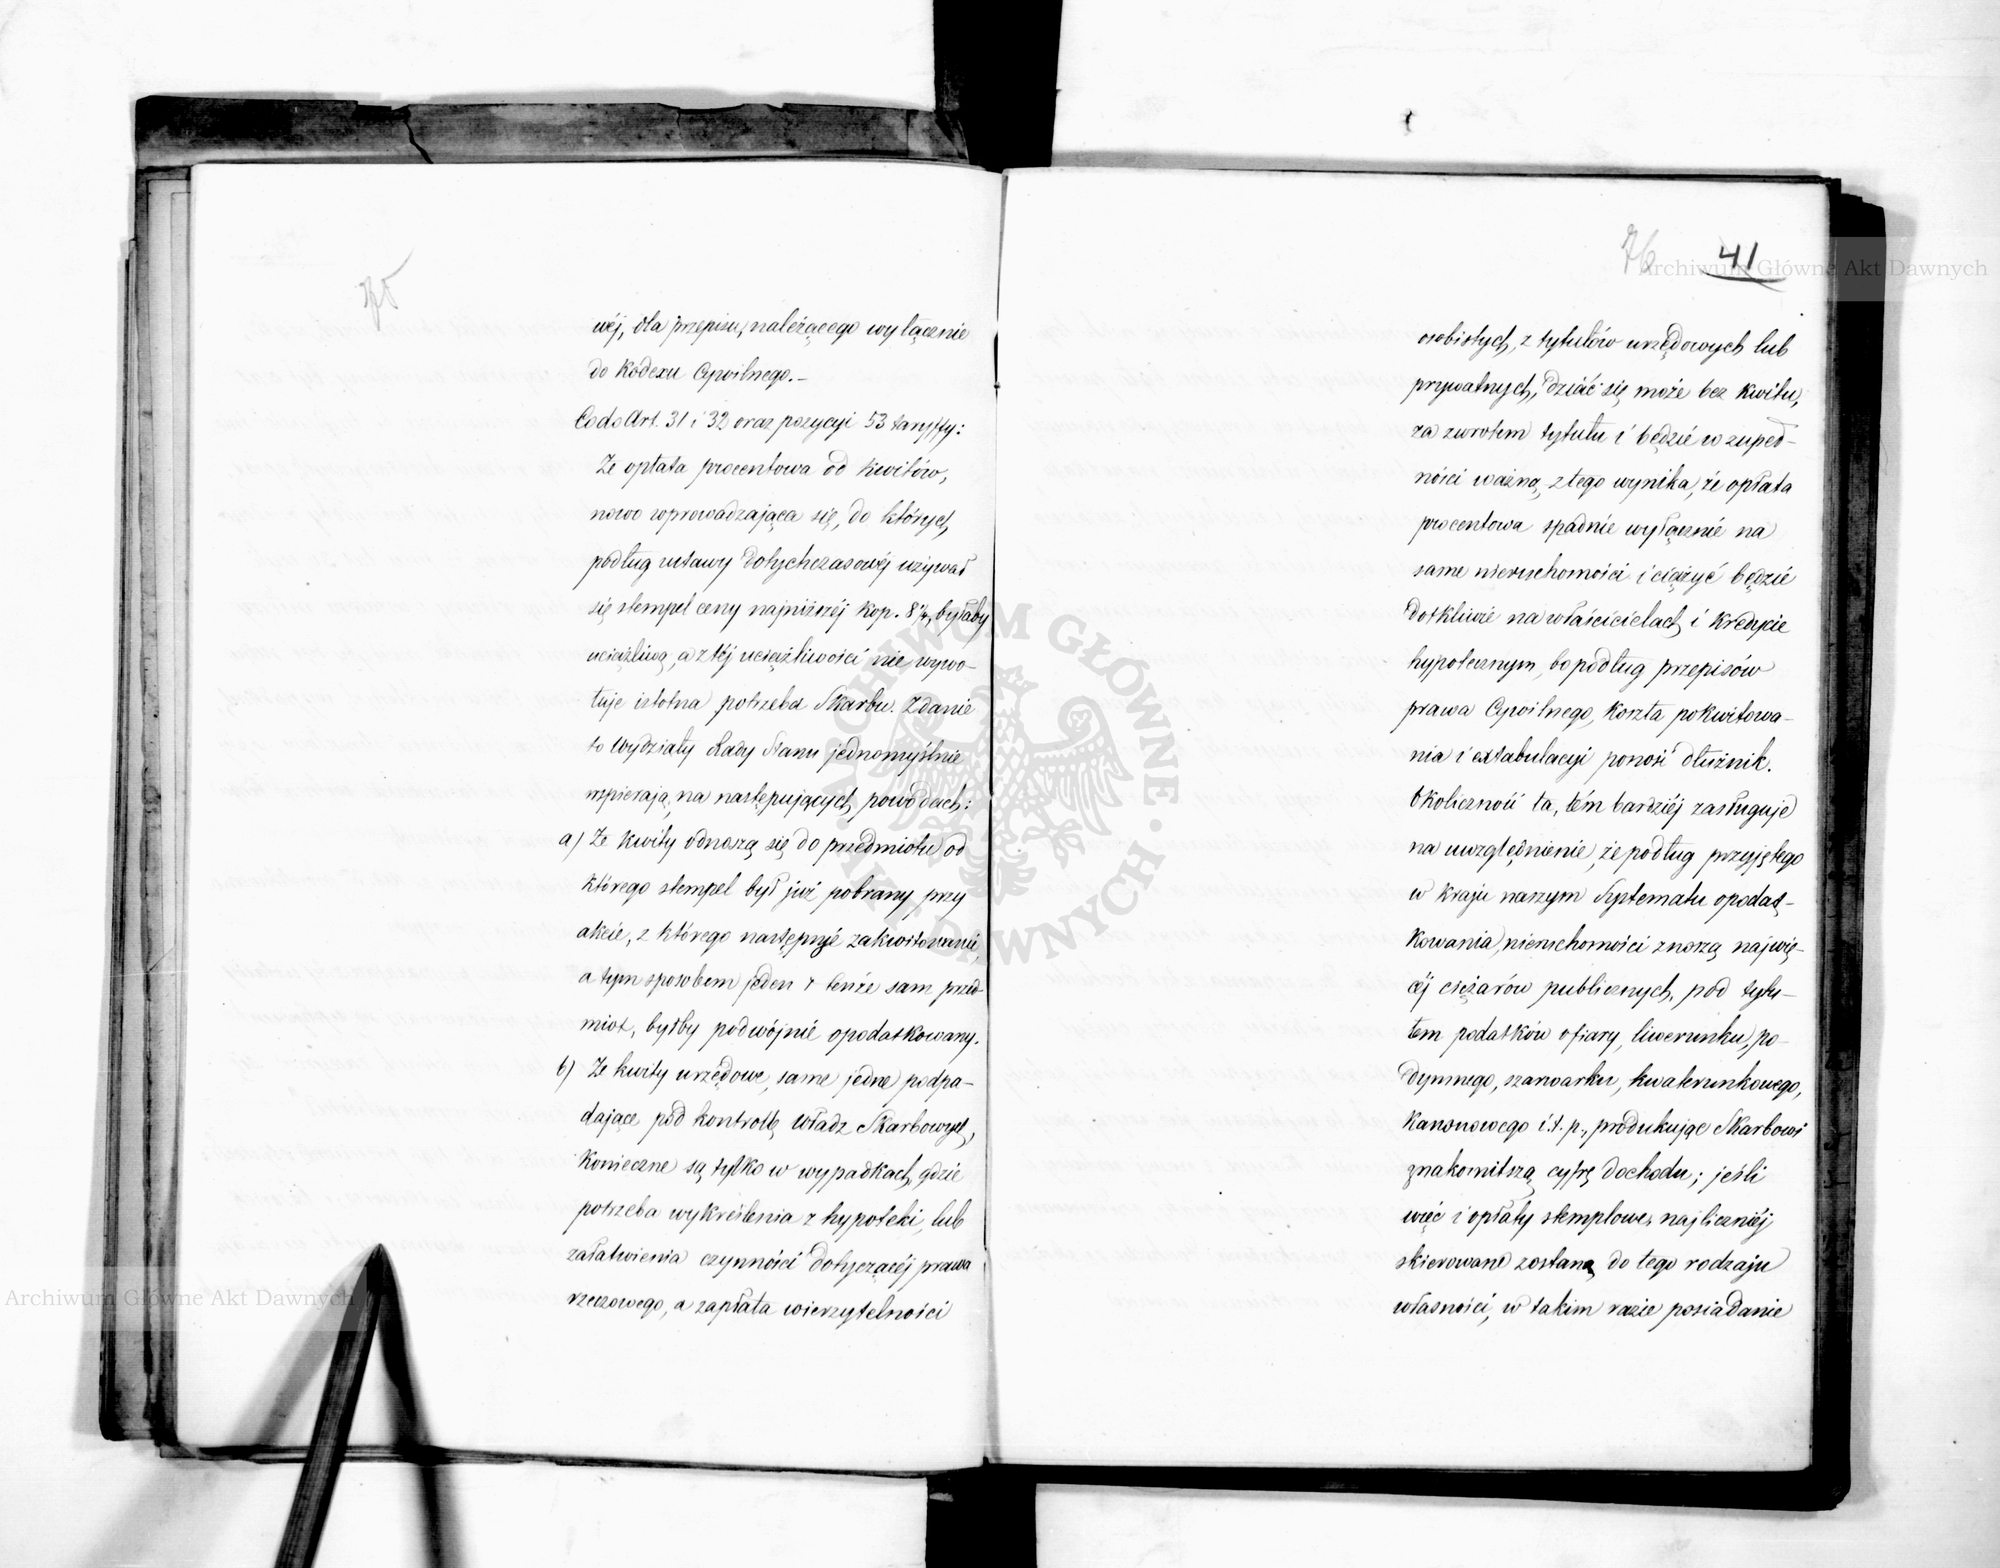 75
wéj, dla przepisu, należącego wyłącznie
do Kodexu Cywilnego.–
Co do Art. 31 i 32 oraz pozycyi 53 taryffy:
Że opłata procentowa od kwitów,
nowo wprowadzająca się, do których,
podług ustawy dotychczasowéj używał
się stempel ceny najniższéj kop. 8¼, byłaby
uciążliwą, a z téj uciążliwości nie wywo-
łuje istotna potrzeba Skarbu. Zdanie
to Wydziały Rady Stanu jednomyślnie
wspierają, na następujących powodach:
a) Że kwity odnoszą się do przedmiotu, od
którego stempel był już pobrany przy
akcie, z którego następuje zakwitowanie,
a tym sposobem jeden i tenże sam przed-
miot, byłby podwójnie opodatkowany.
b) Że kwity urzędowe, same jedne podpa-
dające pod kontrollę Władz Skarbowych,
konieczne są tylko w wypadkach, gdzie
potrzeba wykreślenia z hypoteki, lub
załatwienia czynności dotyczącéj prawa
rzeczowego, a zapłata wierzytelności
76 41
osobistych, z tytułów urzędowych lub
prywatnych, dziać się może bez kwitu,
za zwrotem tytułu i będzie w zupeł-
ności ważną, z tego wynika, że opłata
procentowa spadnie wyłącznie na
same nieruchomości i ciążyć będzie
dotkliwie na właścicielach i kredycie
hypotecznym, bo podług przepisów
prawa Cywilnego, koszta pokwitowa-
nia i extabulacyi ponosi dłużnik.
Okoliczność ta, tém bardziéj zasługuje
na uwzględnienie, że podług przyjętego
w kraju naszym Systematu opodat-
kowania, nieruchomości znoszą najwię-
céj ciężarów publicznych, pod tytu-
łem podatków ofiary, liwerunku, po-
dymnego, szarwarku, kwaterunkowego,
kanonowego i.t.p., produkując Skarbowi
znakomitszą cyfrę dochodu; jeśli
więc i opłaty stemplowe, najliczniéj
skierowane zostaną do tego rodzaju
własności, w takim razie posiadanie
Archiwum Główne Akt Dawnych
Archiwum Główne Akt Dawnych
ARCHIWUM GŁÓWNE AKT DAWNYCH